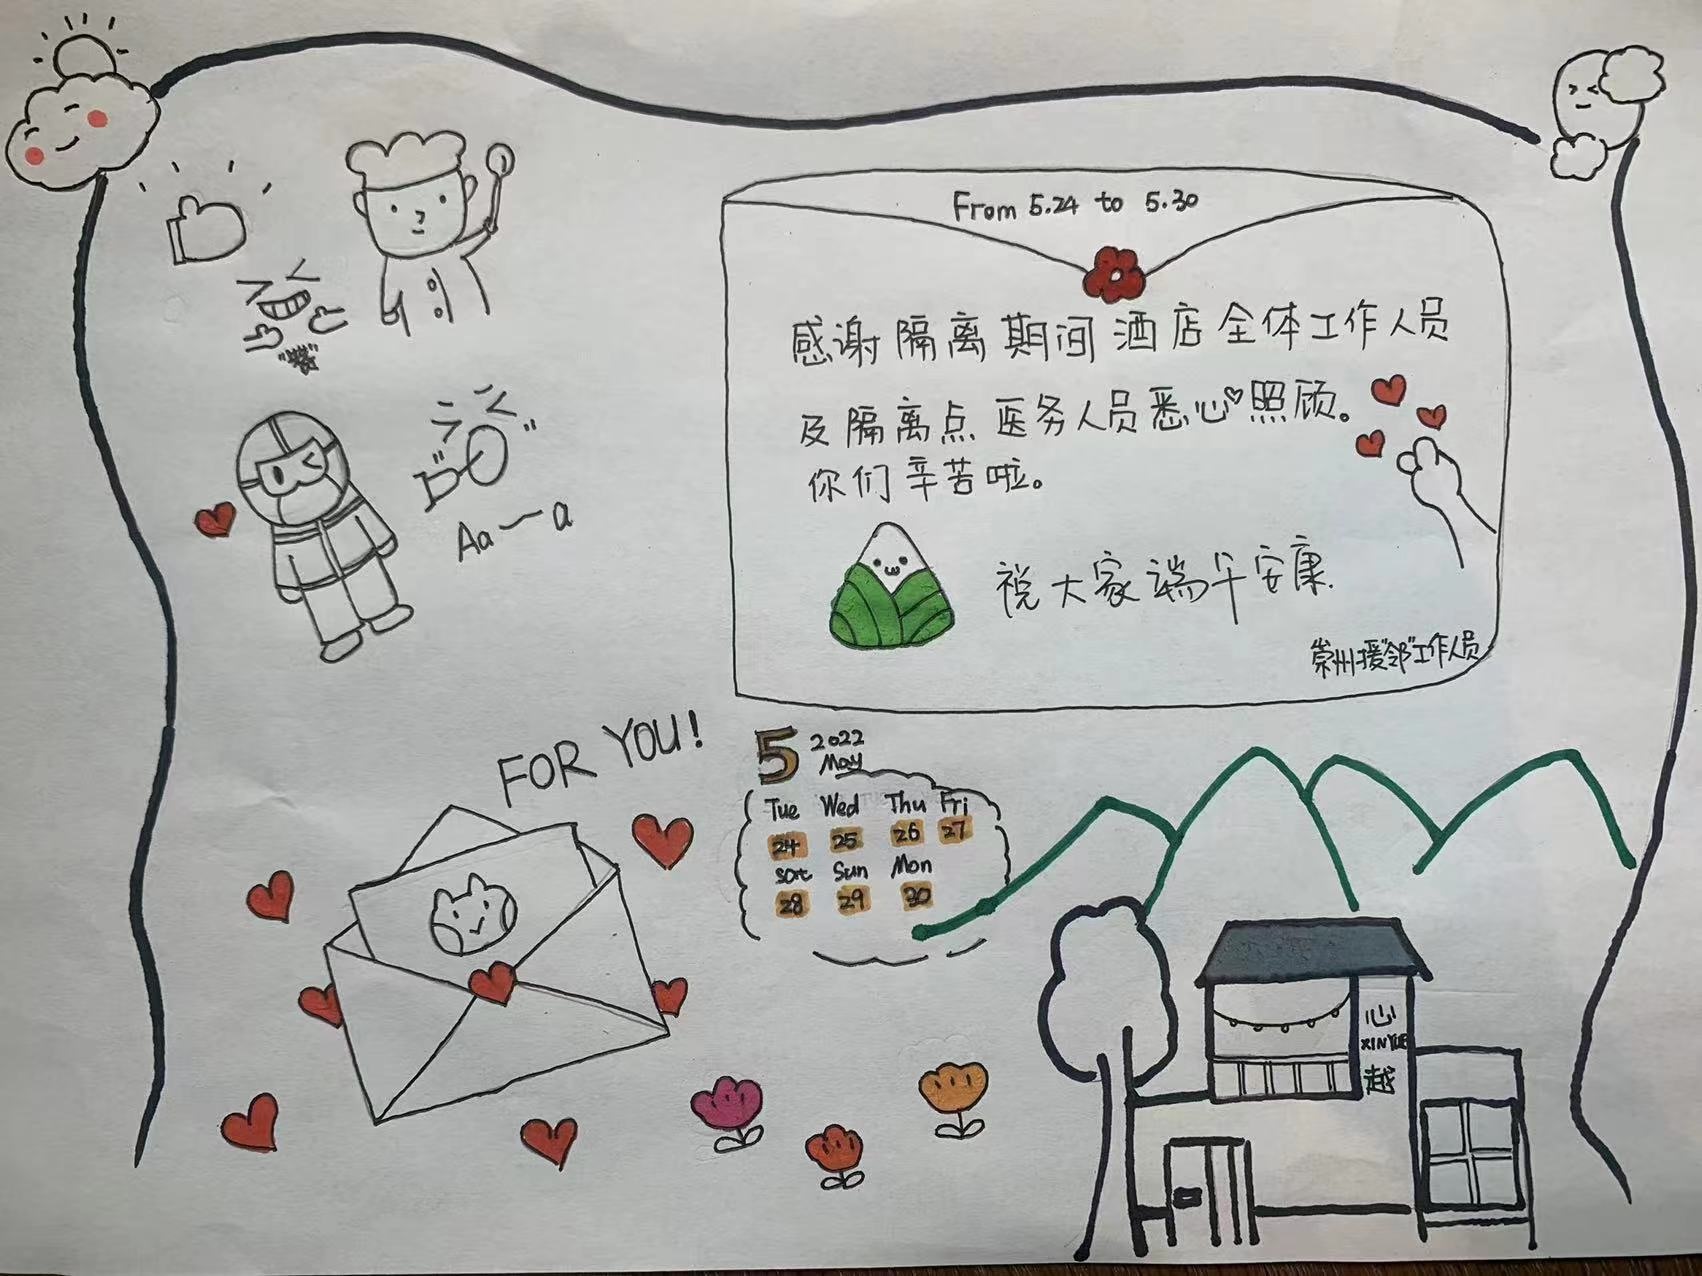 From 5.24 to 5.30
感谢隔离期间酒店全体工作人员
及隔离点医务人员悉心照顾。
你们辛苦啦。
祝大家端午安康.
崇州援"邻"工作人员
Aa～a
FOR YOU!
5 2022
May
Tue Wed Thu Fri
24 25 26 27
Sat Sun Mon
28 29 30
心
XINYUE
越